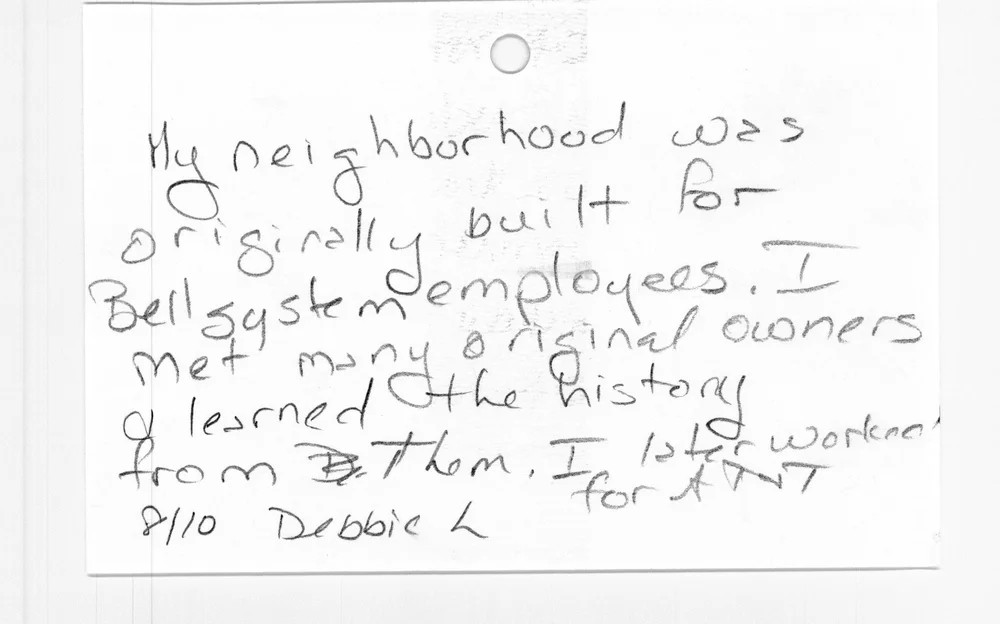 My neighborhood was
originally built for
Bell system employees. I
met many original owners
& learned the history
from Them. I later worked
for ATNT
8/10 Debbie L